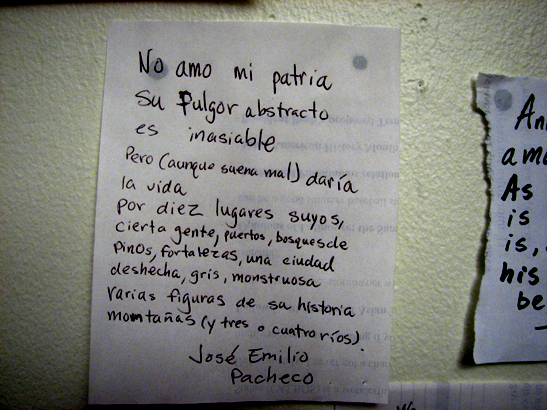 No amo mi patria
Su Fulgor abstracto
es inasiable
Pero (aunque suena mal) daría
la vida
por diez lugares suyos,
cierta gente, puertos, bosques de
pinos, fortalezas, una ciudad
deshecha, gris, monstruosa
varias figuras de su historia
momtañas (y tres o cuatro ríos)
José Emilio
Pacheco
As
is
is,
his
be